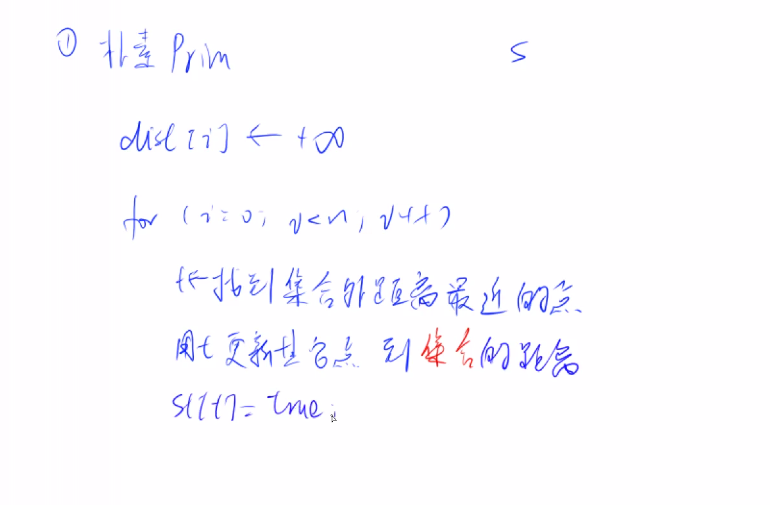 ① 朴素Prim S
dist[i] ← +∞
for (i=0; i<n; i++)
t ← 找到集合外距离最近的点
用t更新其它点到集合的距离
st[t] = true;